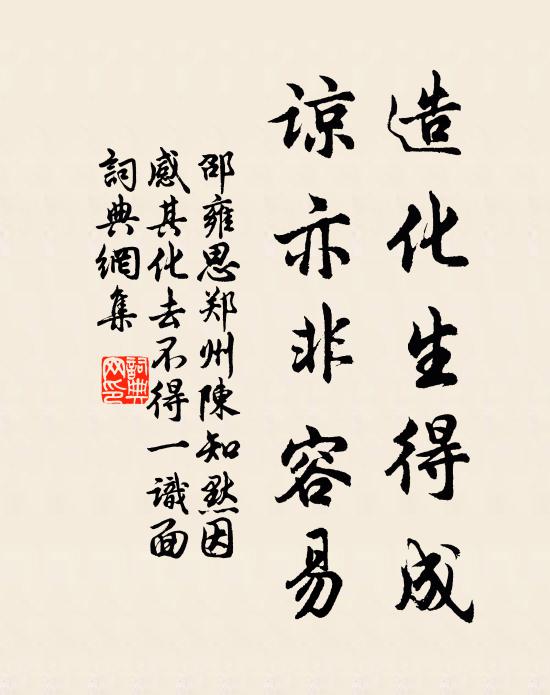 造化生得成
諒亦非容易
邵雍思郑州陳知默因
感其化去不得一識面
詞典網集
詞典
网印